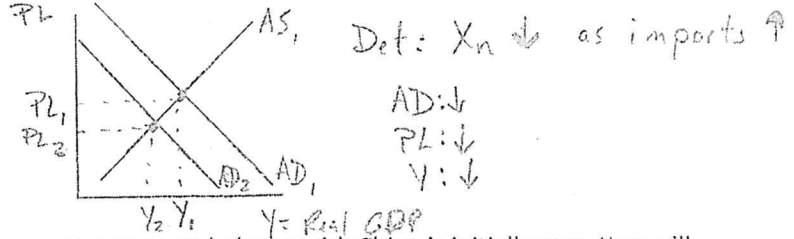 PL
AS₁
Det: Xn ↓ as imports ↑
PL₁
PL₂
AD:↓
PL:↓
Y:↓
AD₂
AD₁
Y₂ Y₁ Y= Real GDP